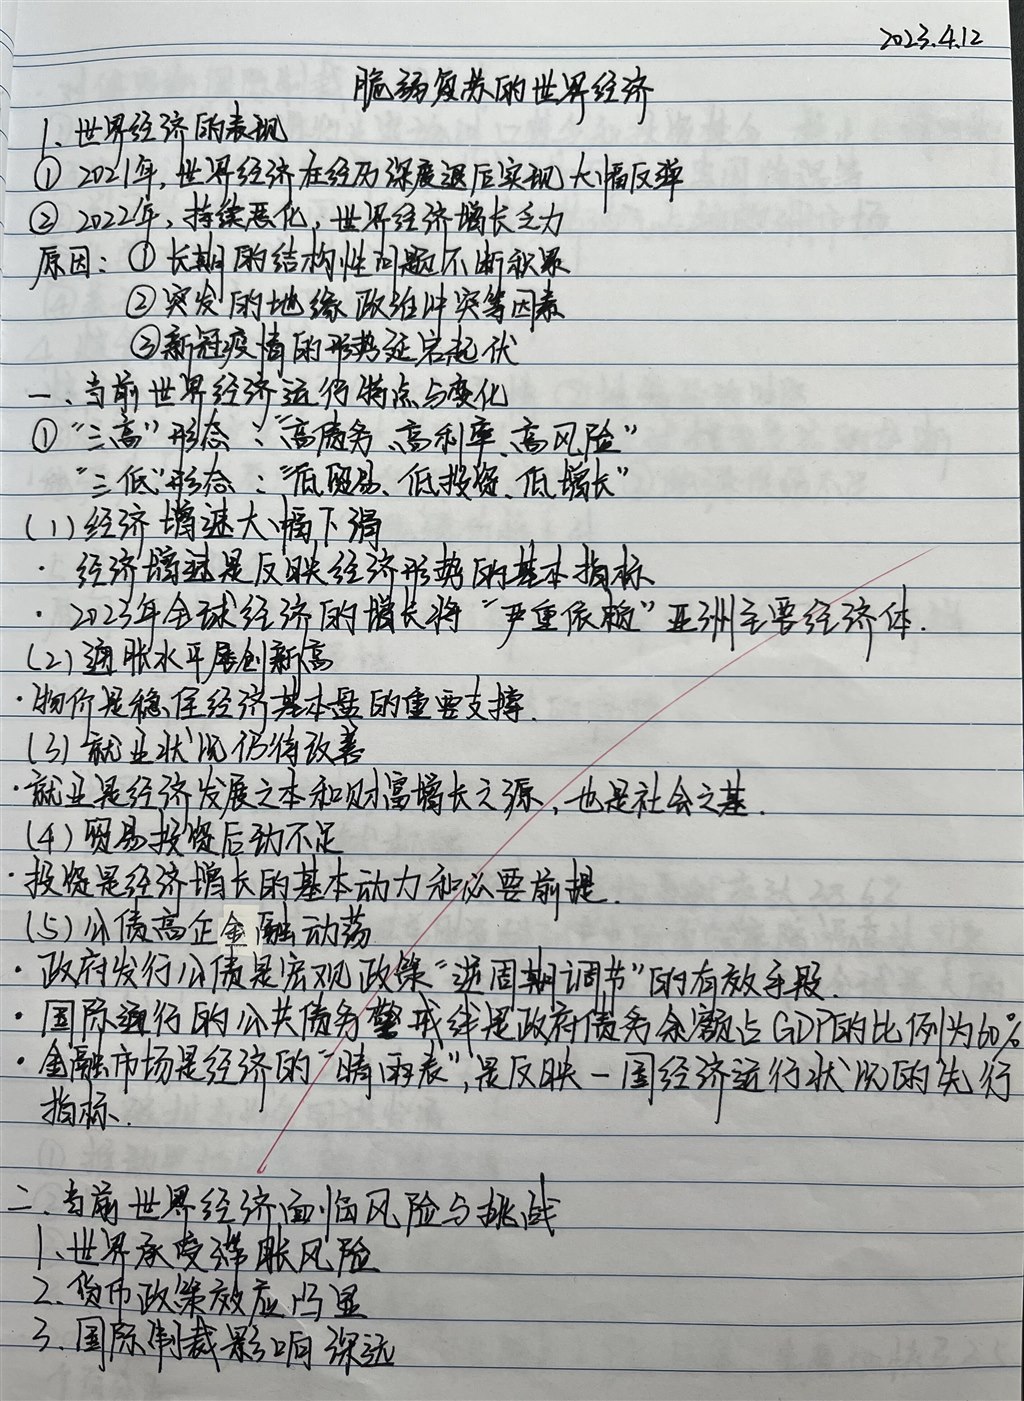 2023.4.12
脆弱复苏的世界经济
1、世界经济的表现
① 2021年，世界经济在经历深度衰退后实现大幅反弹
② 2022年，持续恶化，世界经济增长乏力
原因：① 长期的结构性问题不断积累
② 突发的地缘政治冲突等因素
③ 新冠疫情的形势延宕起伏
一、当前世界经济运行特点与变化
① “三高”形态：“高债务、高利率、高风险”
“三低”形态：“低贸易、低投资、低增长”
(1) 经济增速大幅下滑
· 经济增速是反映经济形势的基本指标
· 2023年全球经济的增长将“严重依赖”亚洲主要经济体.
(2) 通胀水平屡创新高
· 物价是稳住经济基本盘的重要支撑.
(3) 就业状况仍待改善
· 就业是经济发展之本和财富增长之源，也是社会之基.
(4) 贸易投资启动不足
· 投资是经济增长的基本动力和必要前提.
(5) 公债高企金融动荡
· 政府发行公债是宏观政策“逆周期调节”的有效手段.
· 国际通行的公共债务警戒线是政府债务余额占GDP的比例为60%
· 金融市场是经济的“晴雨表”，是反映一国经济运行状况的先行
指标.
二、当前世界经济面临风险与挑战
1、世界承受滞胀风险
2、货币政策效应凸显
3、国际制裁影响深远